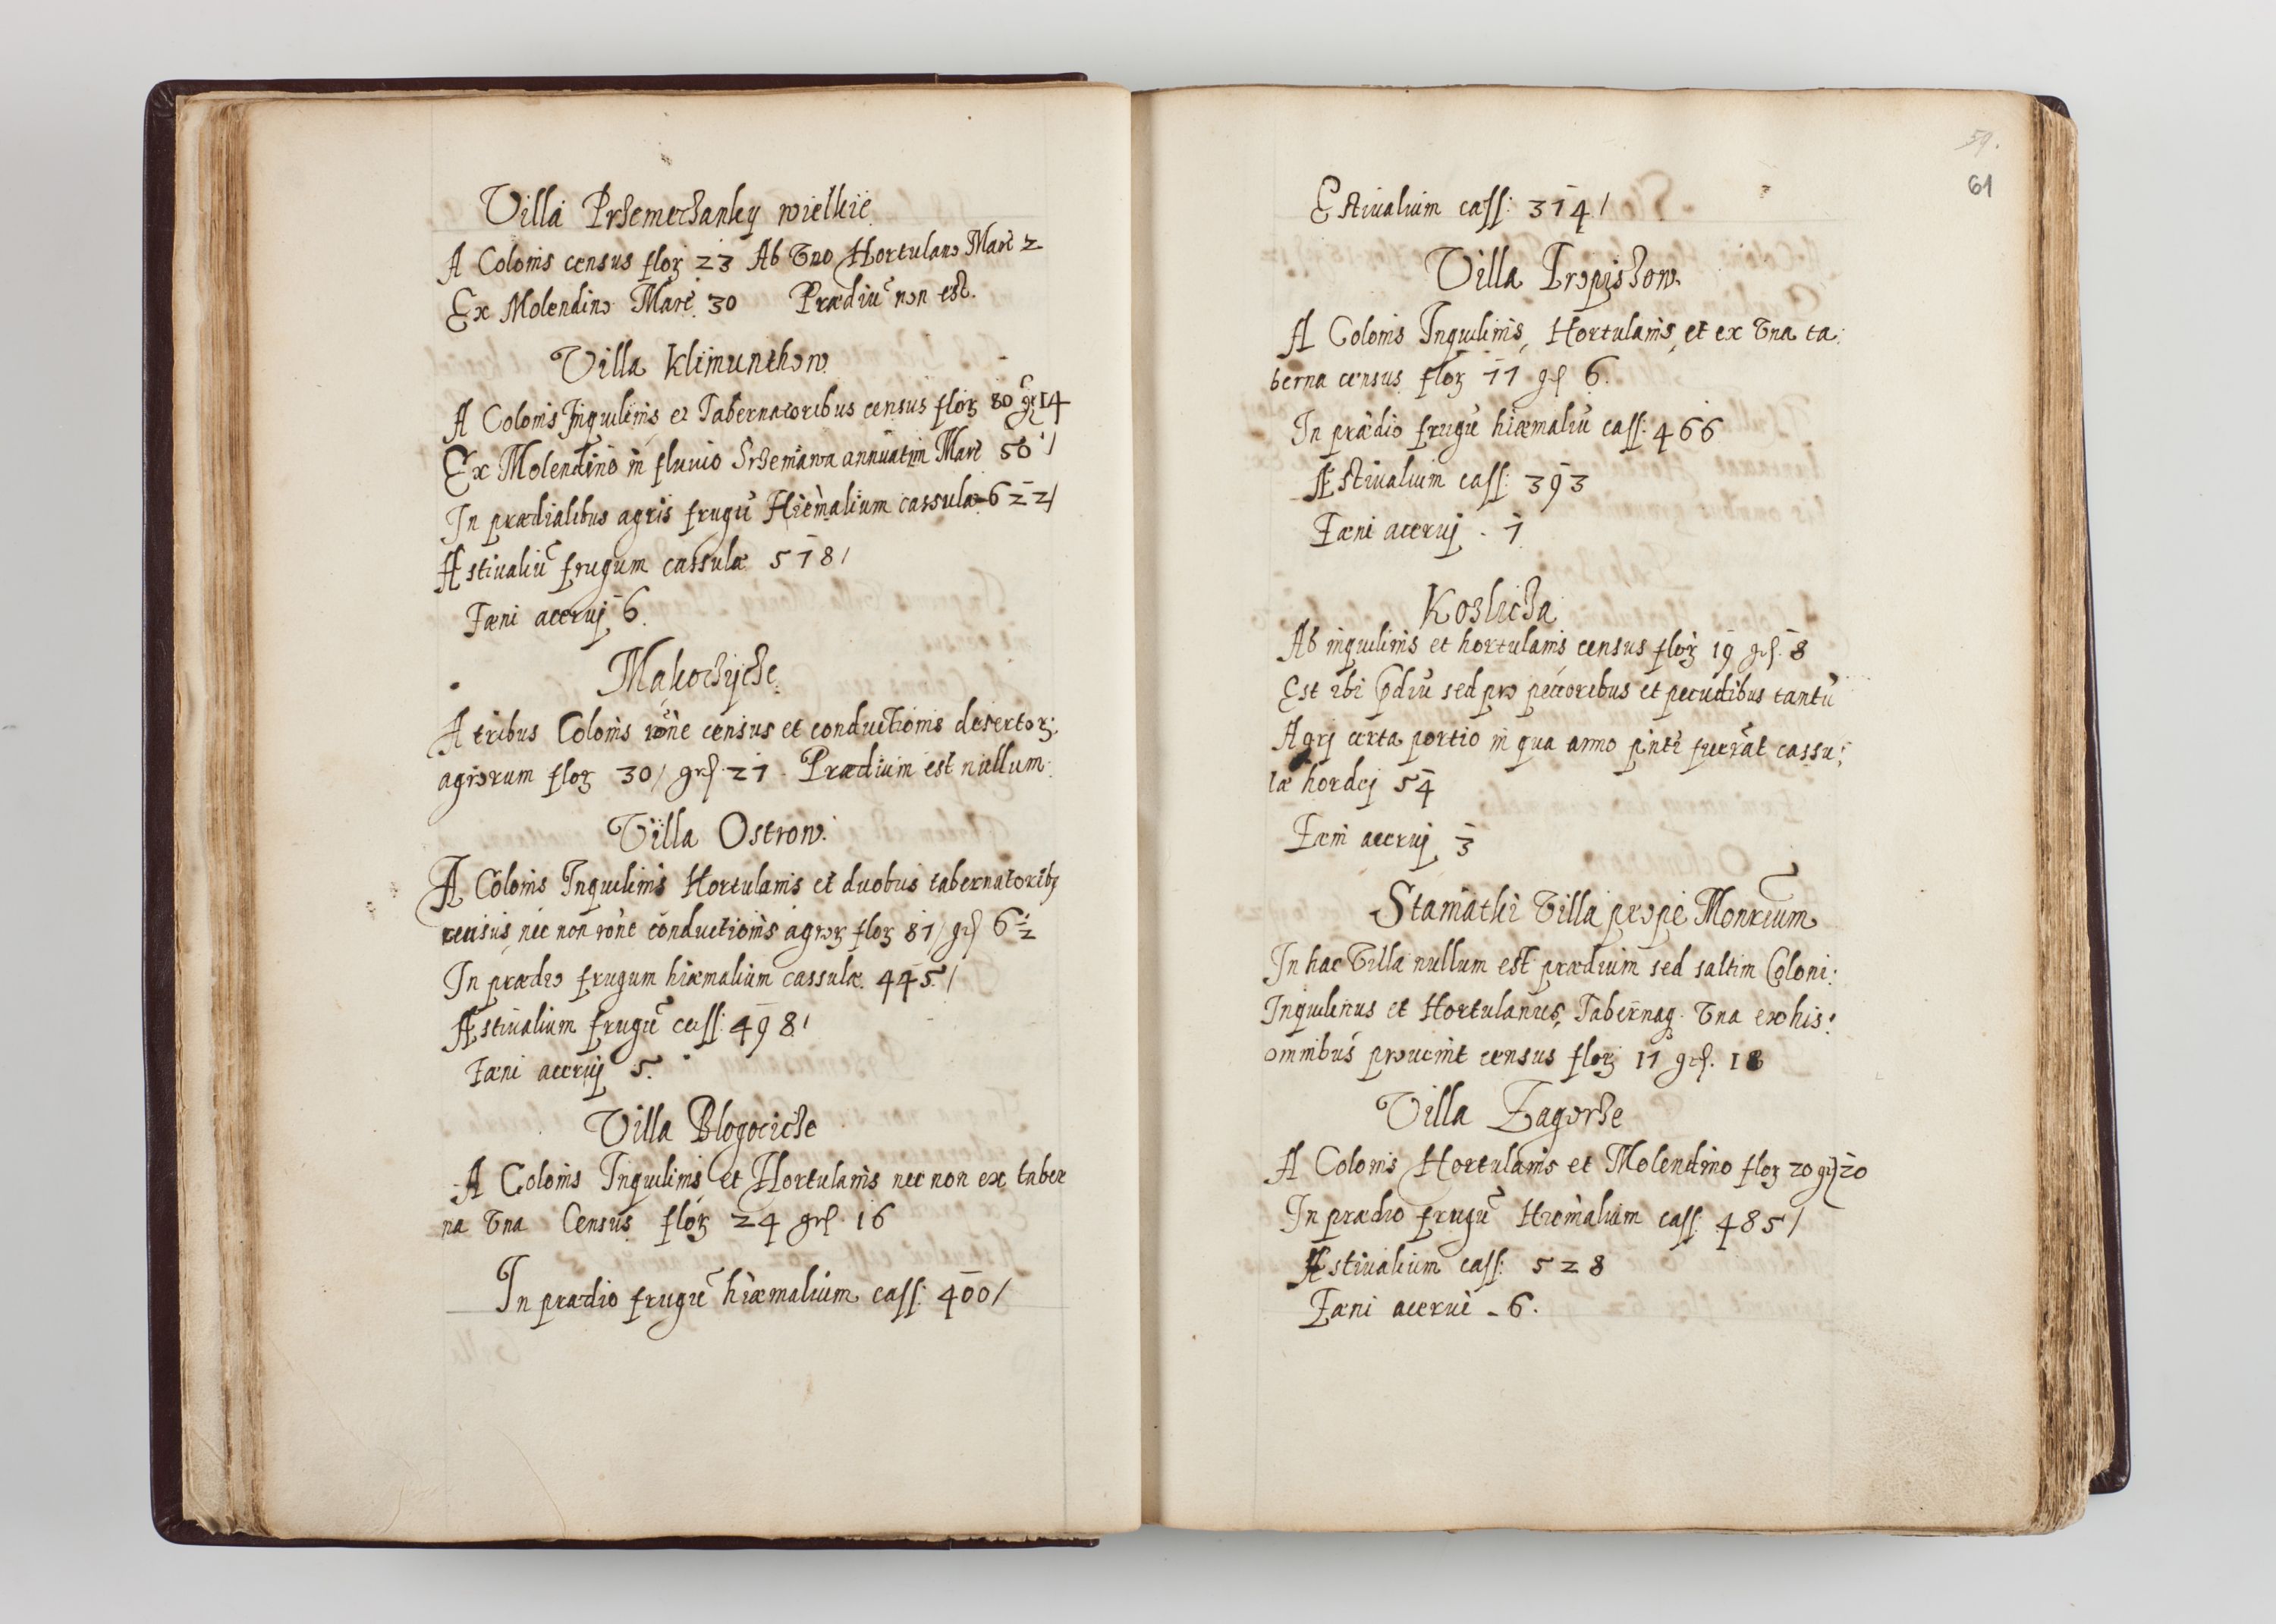 Villa Przemeczanky wielkie
A Colonis census flor 23 Ab Vno Hortulano Marc 2
Ex Molendino Marc 30 Prædiū non est.
Villa Klimunthow
A Colonis Inquilinis et Tabernatoribus census flor 80 gr 14
Ex Molendino in fluuio Srzemawa annuatim Marc 50 /
In prædialibus agris frugū Hiemalium cassulæ 622/
Æstiualiū frugum cassulæ 518/
Fæni aceruj 6.
Makoczycze
A tribus Colonis rōne census et conductionis desertor:
agrorum flor 30/ grs. 21. Prædium est nullum.
Villa Ostrow.
A Colonis Inquilinis Hortulanis et duobus tabernatorib9
census nec non rōne conductionis agror flor 81/ grs 6 1/2
In prædio frugum hiæmalium cassulæ 445/
Æstiualium frugū cass: 498/
Fæni acerüj 5.
Villa Blogocicze
A Colonis Inquilinis et Hortulanis nec non ex taber
na Vna Census flor 24 grs. 16
In prædio frugū hiæmalium cass: 400/
59.
61
Estiualium cass: 314/
Villa Propiszow.
A Colonis Inquilinis, Hortulanis, et ex Vna ta:
berna census flor 11 grs 6.
In prædio frugū hiæmaliū cass: 466
Æstiualium cass: 393
Fæni aceruj . 1
Kozlicza
Ab inquilinis et hortulanis census flor 19 grs. 8
Est ibi p̄diū sed pro pecoribus et pecudibus tantū
Agrj certa portio in qua anno p̄nti fuerāt cassu:
læ hordej 54
Fæni aceruj 3
Stamatki Villa prope Monrium
In hac Villa nullum est prædium sed saltim Coloni:
Inquilinus et Hortulanus, Tabernaq. Vna ex his:
omnibus prouenit census flor 11 grs. 18
Villa Zagorze
A Colonis Hortulanis et Molendino flor 20 grs 20
In prædio frugū Hiemalium cass 485/
Æstiualium cass: 528
Fæni acerui - 6.